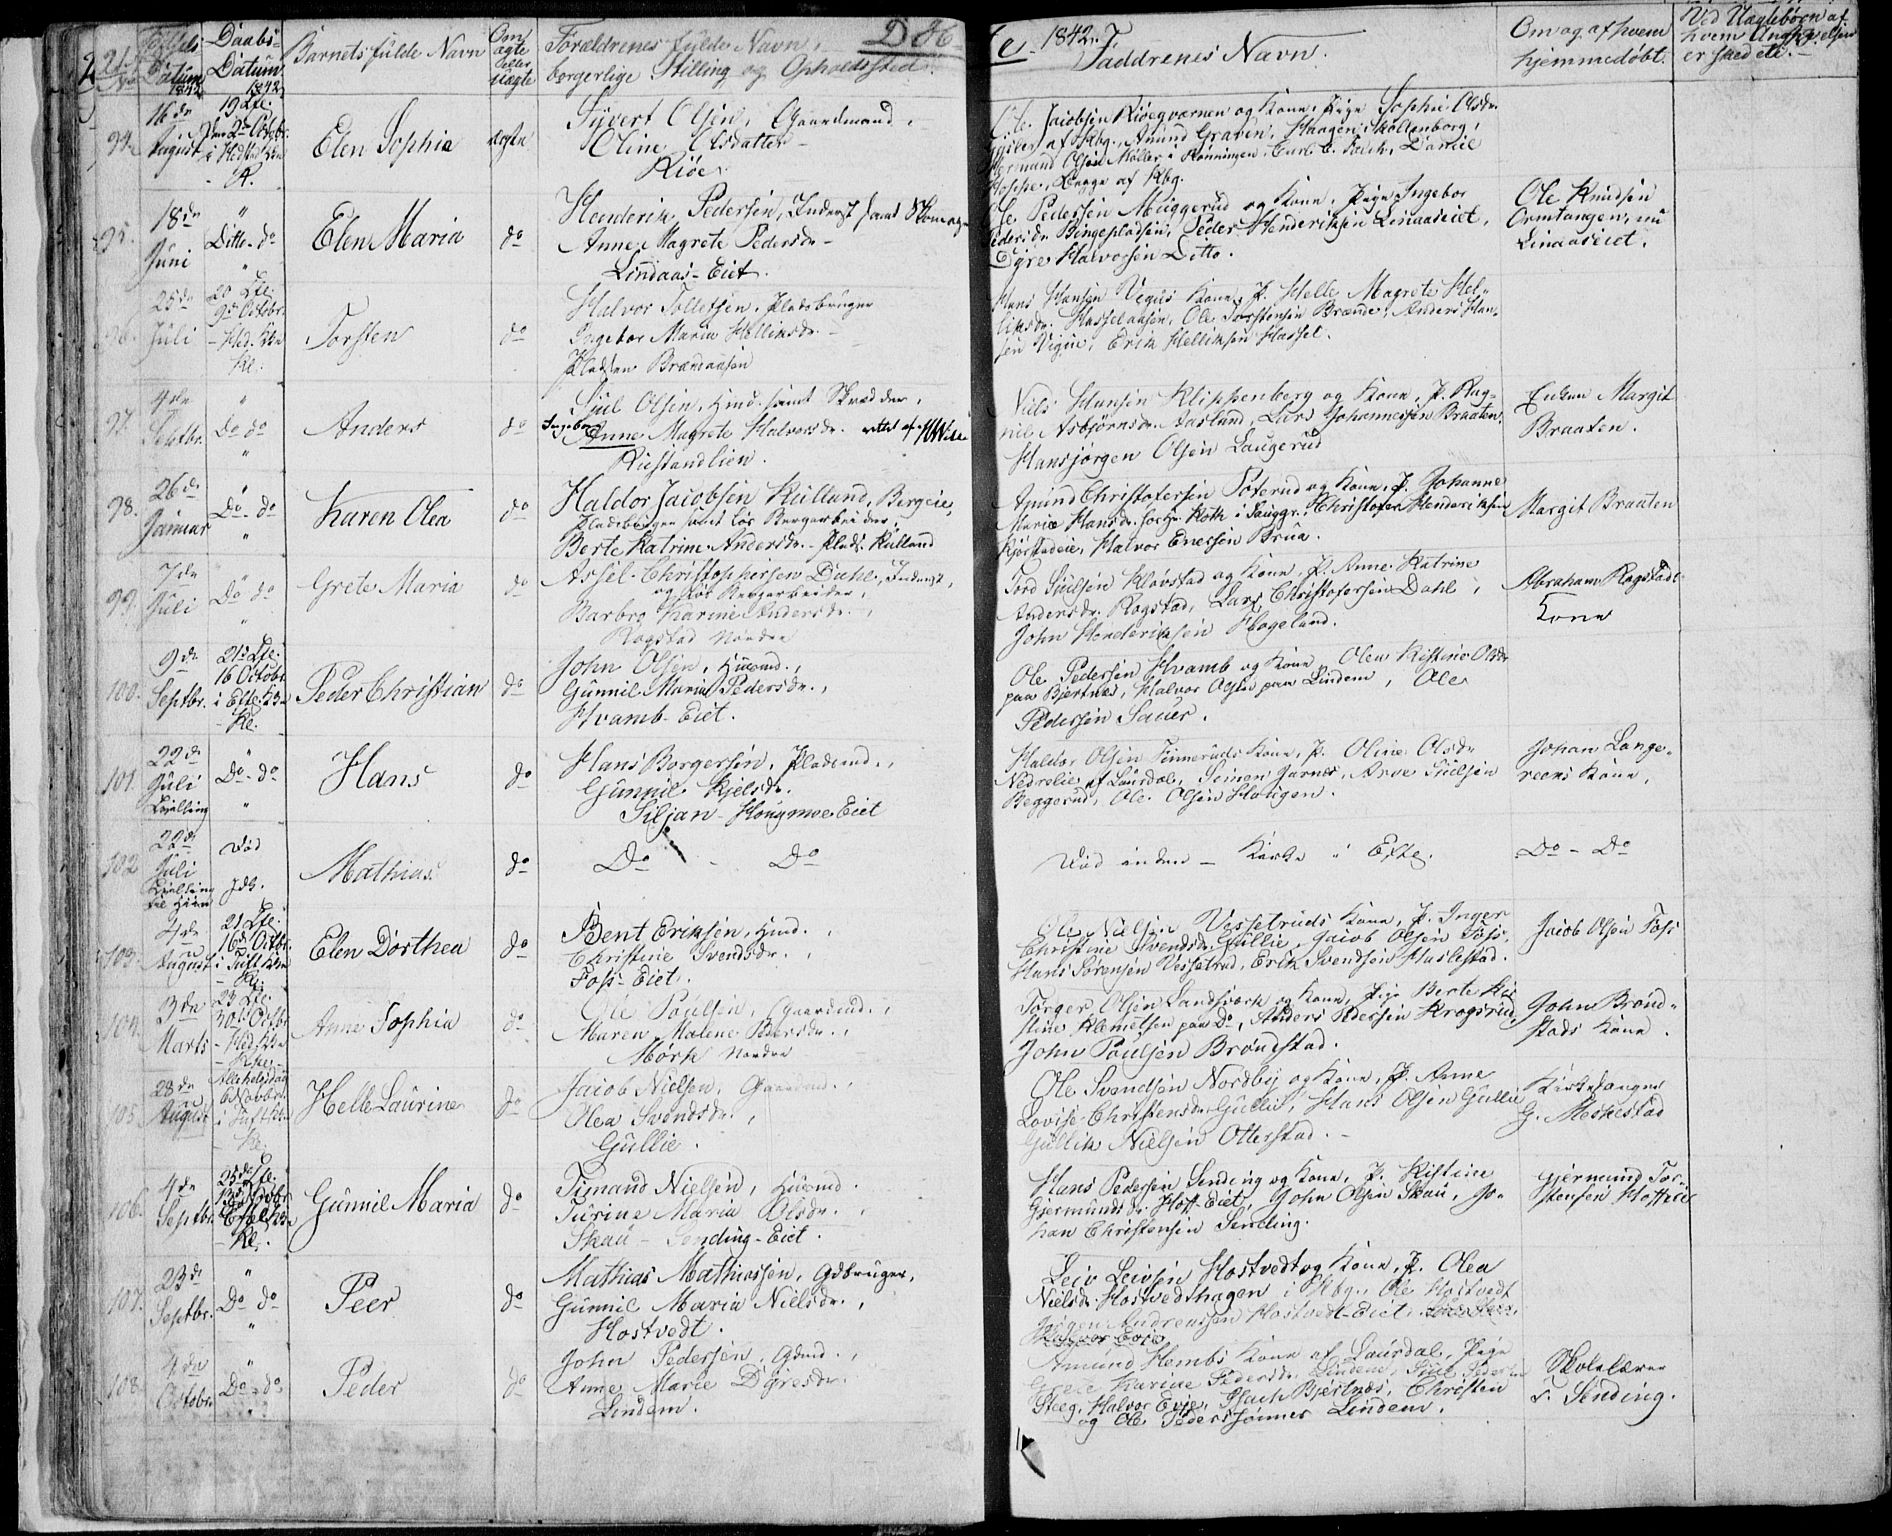 21.
Daabs-
Datum
1842
Barnets fulde Navn
Om
ægte
eller
uægte
Forældrenes fulde Navn,
borgerlige Stilling og Opholdssted.
Døb-
te 1842.
Faddrenes Navn.
Om og af hvem
hjemmedøbt.
Ved Uægtebørn af
hvem Angivelsen
er skeed etc.
94.
16de
August
19 Efe.
2den Octbr.
i Hedst. Kke
Elen Sophia
ægte
Syvert Olsen, Gaardmand,
Oline Olsdatter
Riøe.
Ole Jacobsen Riøegværnen og Kone, Pige Sophie Olsdr.
af Kbg., Amund Graven, Haagen Skollenborg,
Hermand Olsen Møller i Rønningen, Carl C. Koch, Daniel
Hoppe, Begge af Kbg.
95.
18de
Juni
"
Ditto - do
"
Elen Maria
do
Henderik Pedersen, Inderst samt Skomag.
Anne Magrete Pedersdr.
Lindaas-Eiet.
Ole Pedersen Muggerud og Kone, Pige Ingebor
Pedersdr. Bingepladsen, Peder Henderiksen Linaaseiet,
Dyre Halvorsen Ditto.
Ole Knudsen
Ormtangen, nu
Linaaseiet.
96.
25de
Juli
20 Efe.
9de Octobr.
- Hed. Kke
Kl.
Torsten
do
Halvor Tollefsen, Pladsbruger
Ingebor Maria Helliksdr.
Pladsen Brændaasen
Hans Hansen Vigus Kone, P. Helle Magrete Hel-
liksdr. Hasselaasen, Ole Torstensen Brænde, Anders Han-
sen Vigu, Erik Helliksen Hassel.
97.
4de
Septbr.
"
Do do
"
Anders
do
Sjul Olsen, Huusd. samt Skrædder,
Ingebor
Anne Magrete Halvorsdr. rettet af
Ruestandlien.
Niels Hansen Klippenberg og Kone, P. Rag-
nil Asbjørnsdr. Aasland, Lars Johannessen Braaten,
Hansjørgen Olsen Laugerud
Enken Margit
Braaten.
98.
26de
Januar
"
Do - do
"
Karen Olea
do
Haldor Jacobsen Rulland, Bergeie,
Pladsbruger samt løs Bergarbeider,
Berte Katrine Andersdr. - Plads. Rulland
Amund Christofersen Poterud og Kone, P. Johanne
Maria Hansdr. Koth i Saugr., Christofer Henderiksen
Kjørstadeie, Halvor Enersen Brua.
Margit Braaten
99.
7de
Juli
"
Do do
"
Grete Maria
do
Assel Christophersen Dahl, Inderst,
og løs Bergarbeider,
Barbro Karine Andersdr.,
Rogstad Nordre
Tord Siulsen Kløvstad og Kone, P. Anne Katrine
Andersdr. Rogstad, Lars Christofersen Dahl,
John Henderiksen Hageland.
Abraham Rogstads
Kone
100.
9de
Septbr.
21de Efe.
16 Octobr.
i Efte. Kke
Kl.
Peder Christian
do
John Olsen, Huusmd.,
Gunnil Maria Pedersdr.,
Hvamb-Eiet.
Ole Pedersen Hvamb og Kone, Olea Kistine Olsdr.
paa Bjertnæs, Halvor Olsen paa Lindem, Ole
Pedersen Sauer.
101.
22de
Juli
Tvilling
"
Do - do
"
Hans
do
Hans Borgersen, Pladsmd.,
Gunnil Kjelsdr.
Siljan - Hougmoe Eiet
Haldor Olsen Finneruds Kone, P. Oline Olsdr.
Nedrelie af Laurdal, Simen Jarnes, Arve Siulsen
Beggerud, Ole Olsen Haugen.
Johan Lange-
reens Kone,
102
22de
Juli
Tvilling
til Hans
død
Mathias
do
Do - Do
Død inden - Kirke i Efte.
Do - Do
103.
4de
August
21 Efe.
16de Octbr.
i Tuft Kke
Kl.
Elen Dorthea
do
Bent Eriksen, Huusd.,
Christine Svendsdr.,
Foss-Eiet.
Ole Nielsen Vessetruds Kone, P. Inger
Christine Svendsdr. Gullie, Jacob Olsen Foss,
Hans Sørensen Vessetrud, Erik Svendsen Haslestad.
Jacob Olsen Foss
104.
3de
Marts
23 Efe.
30de Octbr.
- Hed. Kke
- Kl.
Anne Sophia
do
Ole Poulsen, Gaardmd.,
Maren Malene Pedersdr.,
Mørk Nordre
Torger Olsen Sandsværk og Kone, Pige Berte Ki-
stine Klemetsen paa Do, Anders Pedersen Krogsrud,
John Poulsen Brøndstad.
John Brønd-
stads Kone.
105
28de
August
Allehelgsdag
6 Novbr.
i Tuft Kke
- Kl.
Helle Laurine
do
Jacob Nielsen, Gaardmd.,
Olea Svendsdr.,
Gullie.
Ole Svendsen Nordby og Kone, P. Anne
Lovise Christensdr. Gullie, Hans Olsen Gullie
Gullik Nielsen Otterstad.
Kirkesanger
G. Meknestad
106.
4de
Septbr.
25de Efe.
13de Novbr.
i Efte Kke
- Kl.
Gunnil Maria
do
Timand Nielsen, Huusmd.
Turine Maria Olsdr.,
Skau - Sending-Eiet.
Hans Pedersen Sending og Kone, P. Kistine
Gjermundsdr. Hoff-Eiet, John Olsen Skau, Jo-
han Christensen Sending.
Gjermund Tor-
stensen Hoffeie
107.
23de
Septbr.
"
Do do
"
Peer
do
Mathias Mathiassen, Gdbruger,
Gunnil Maria Nielsdr.,
Hostvedt.
Leiv Leivsen Hostvedt og Kone, P. Olea
Nielsdr. Hostvedthagen i Kbg., Ole Hostvedt
Jørgen Andreassen Hostvedt-Eiet,
Halvor Evje
108.
4de
Octobr.
"
Do - do
"
Peder
do
John Pedersen, Gdmd.,
Anne Marie Dyresdr.
Lindem.
Amund Hembs Kone af Laurdal, Pige
Grete Karine Pedersdr. Lindem, Siul Pedersen
Steeg, Halvor Evje, Isach Bjertnæs, Christen
og Ole Pederssønner Lindem.
Skolelærer
T. Sending.